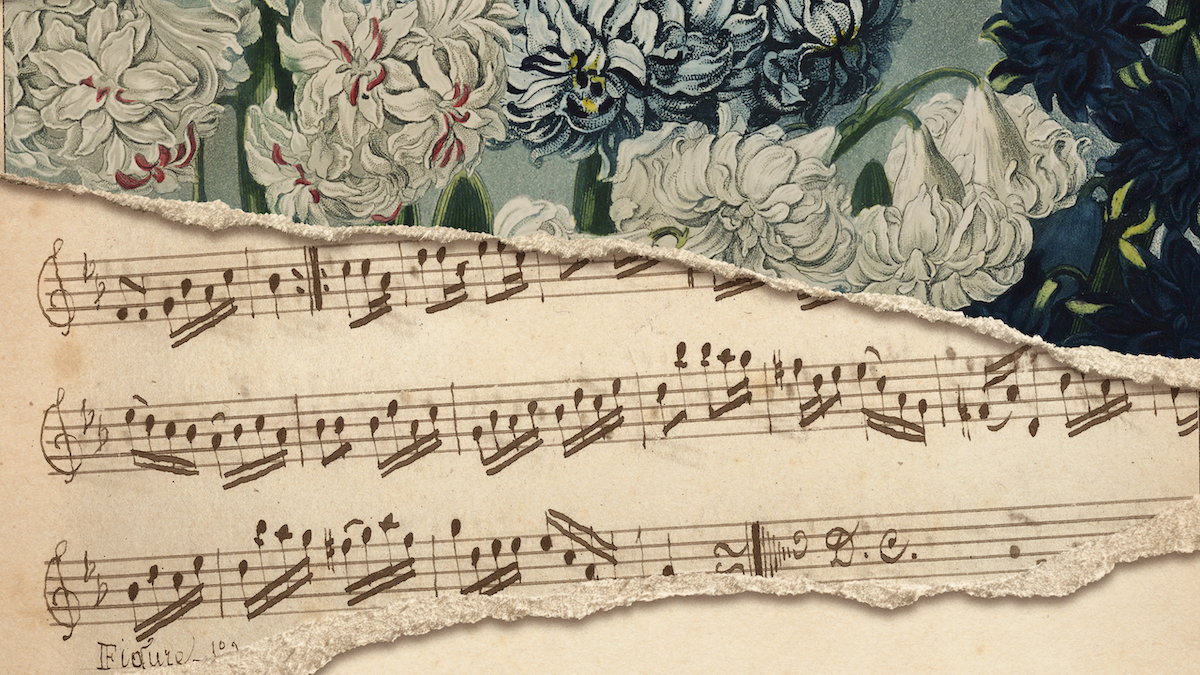 D. C.
Figure 1ª